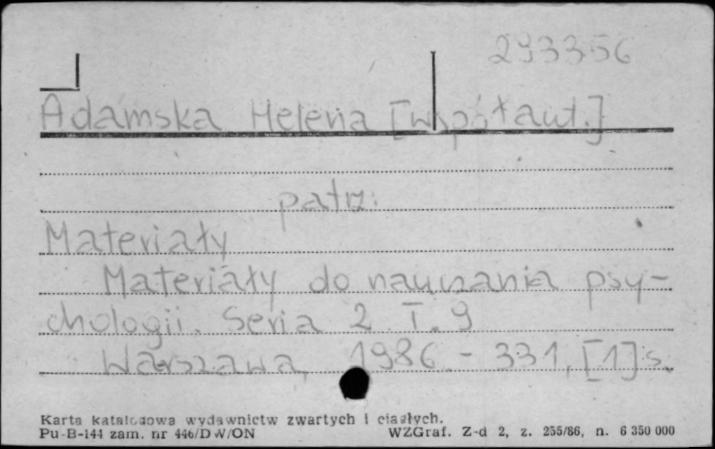 293356
Adamska Helena [współaut.]
patrz:
Materiały
Materiały do nauczania psy-
chologii. Seria 2 T. 9
Warszawa, 1986. - 331, [1] s.
Karta katalogowa wydawnictw zwartych i ciągłych.
Pu-B-144 zam. nr 446/DW/ON WZGraf. Z-d 2, z. 255/86, n. 6 350 000